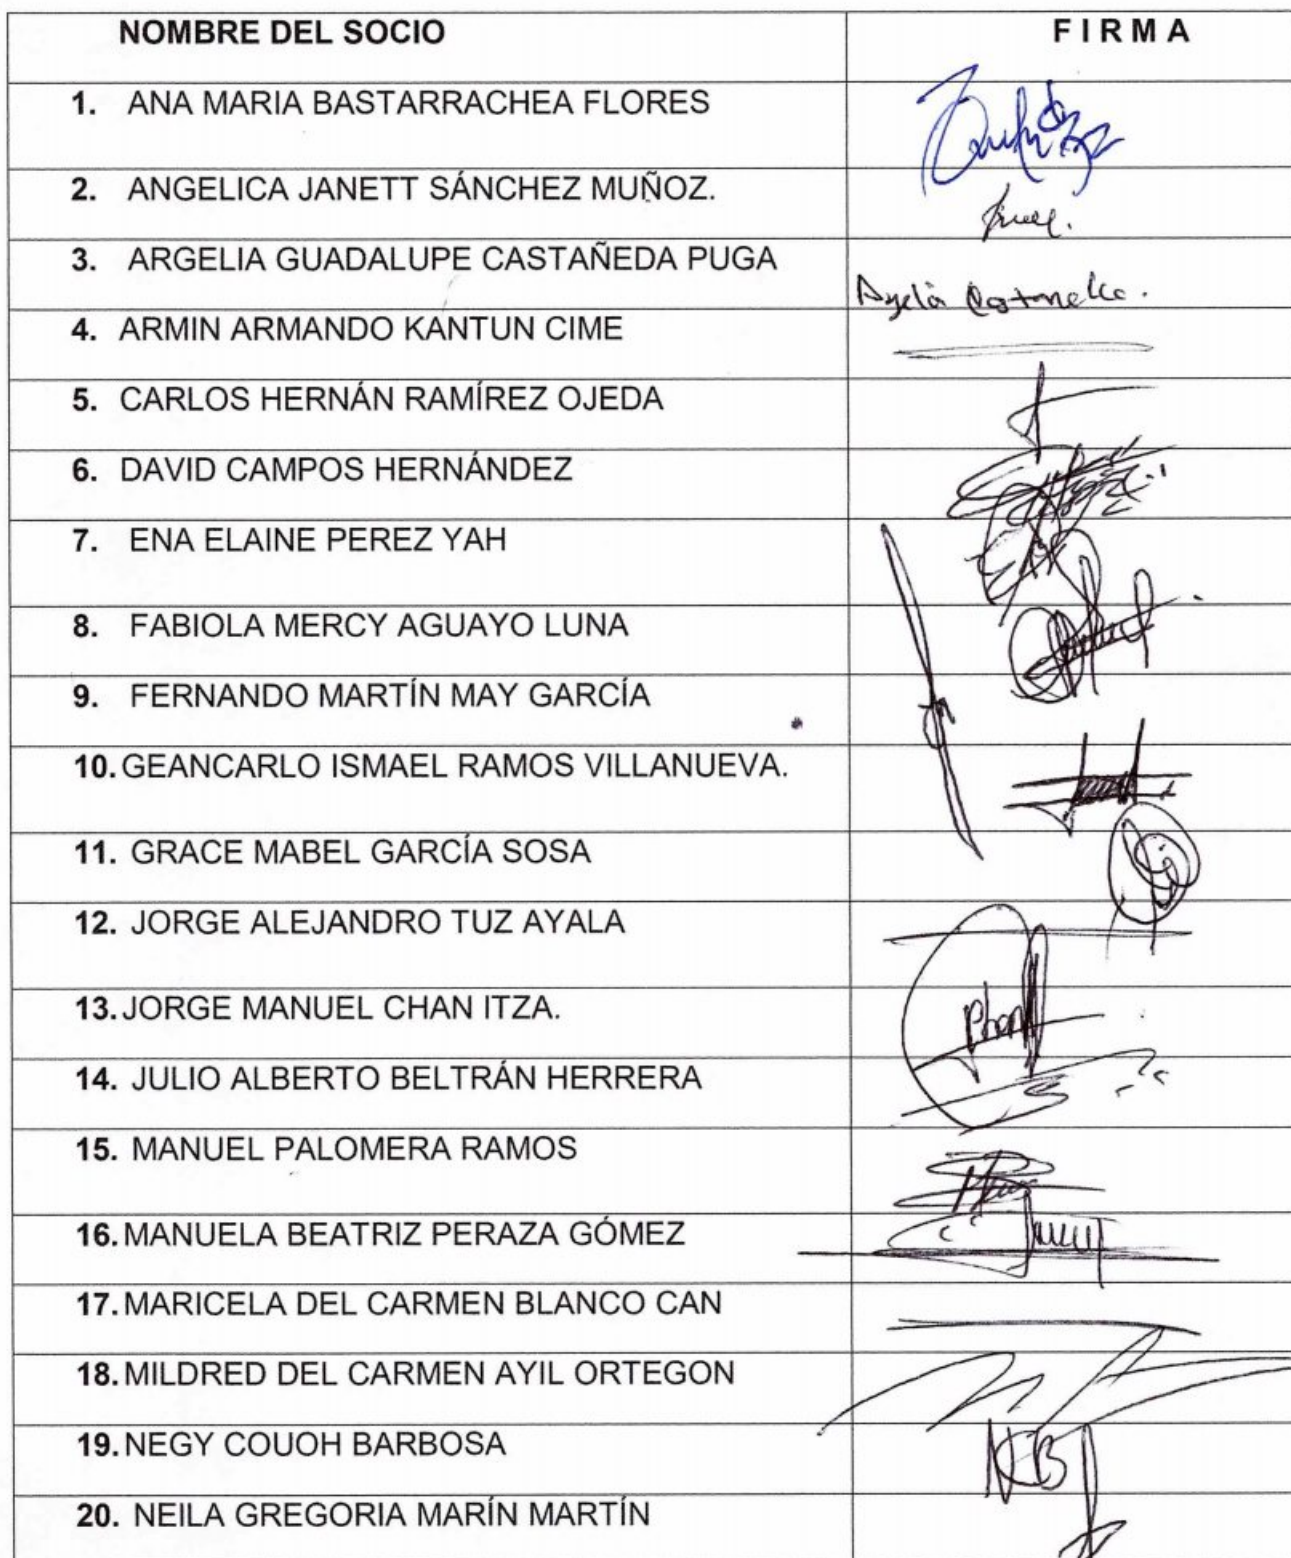 NOMBRE DEL SOCIO FIRMA
1. ANA MARIA BASTARRACHEA FLORES
2. ANGELICA JANETT SÁNCHEZ MUÑOZ.
3. ARGELIA GUADALUPE CASTAÑEDA PUGA
4. ARMIN ARMANDO KANTUN CIME
5. CARLOS HERNÁN RAMÍREZ OJEDA
6. DAVID CAMPOS HERNÁNDEZ
7. ENA ELAINE PEREZ YAH
8. FABIOLA MERCY AGUAYO LUNA
9. FERNANDO MARTÍN MAY GARCÍA
10. GEANCARLO ISMAEL RAMOS VILLANUEVA.
11. GRACE MABEL GARCÍA SOSA
12. JORGE ALEJANDRO TUZ AYALA
13. JORGE MANUEL CHAN ITZA.
14. JULIO ALBERTO BELTRÁN HERRERA
15. MANUEL PALOMERA RAMOS
16. MANUELA BEATRIZ PERAZA GÓMEZ
17. MARICELA DEL CARMEN BLANCO CAN
18. MILDRED DEL CARMEN AYIL ORTEGON
19. NEGY COUOH BARBOSA NCB
20. NEILA GREGORIA MARÍN MARTÍN